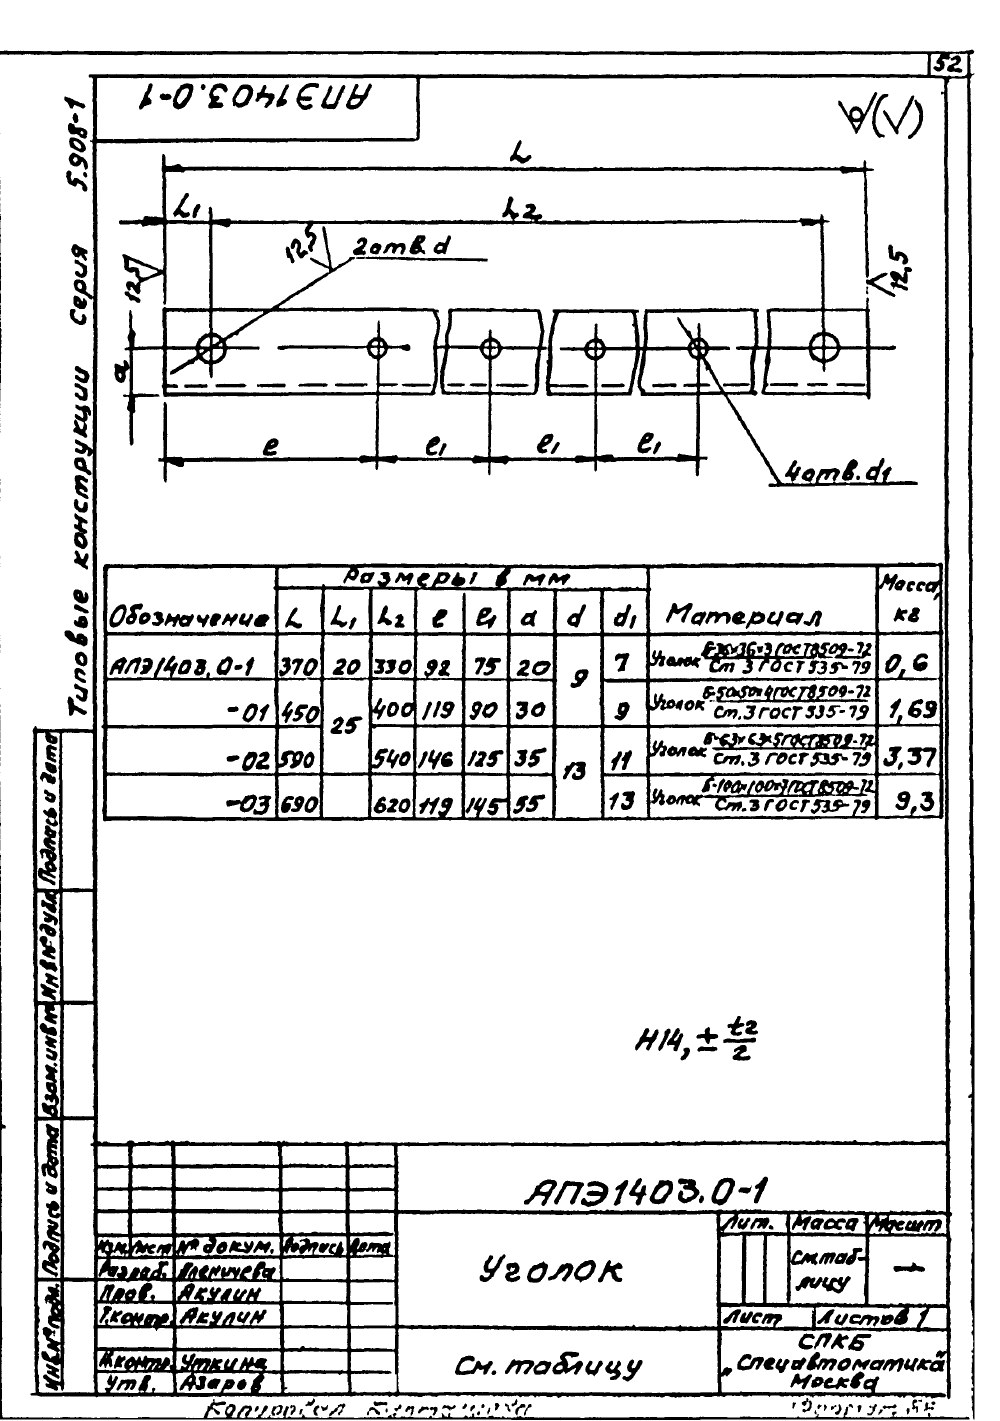 52
АПЭ1403.0-1
Типовые конструкции серия 5.908-1
(√)
L
L1
L2
12,5
2 отв. d
12,5
12,5
a
e
e1
e1
e1
4 отв. d1
Обозначение
Размеры в мм
Материал
Масса, кг
L L1 L2 e e1 a d d1
АПЭ1403.0-1 370 20 330 92 75 20 9 7 Уголок Б-36х36х3 ГОСТ 8509-72 / Ст. 3 ГОСТ 535-79 0,6
-01 450 25 400 119 90 30 9 Уголок Б-50х50х4 ГОСТ 8509-72 / Ст. 3 ГОСТ 535-79 1,69
-02 590 540 146 125 35 13 11 Уголок Б-63х63х5 ГОСТ 8509-72 / Ст. 3 ГОСТ 535-79 3,37
-03 690 620 119 145 55 13 Уголок Б-100х100х7 ГОСТ 8509-72 / Ст. 3 ГОСТ 535-79 9,3
H14, ± t2/2
Подпись и дата
Инв.№ дубл.
Взам.инв.№
Подпись и дата
Инв.№ подл.
АПЭ1403.0-1
Изм. Лист № докум. Подпись Дата
Разраб. Пленичева
Пров. Акулин
Т.контр. Акулин
Н.контр. Уткина
Утв. Азаров
Уголок
См. таблицу
Лит. Масса Масшт
См. таб-
лицу
—
Лист Листов 1
СПКБ
„Спецавтоматика"
Москва
Копировал
Формат